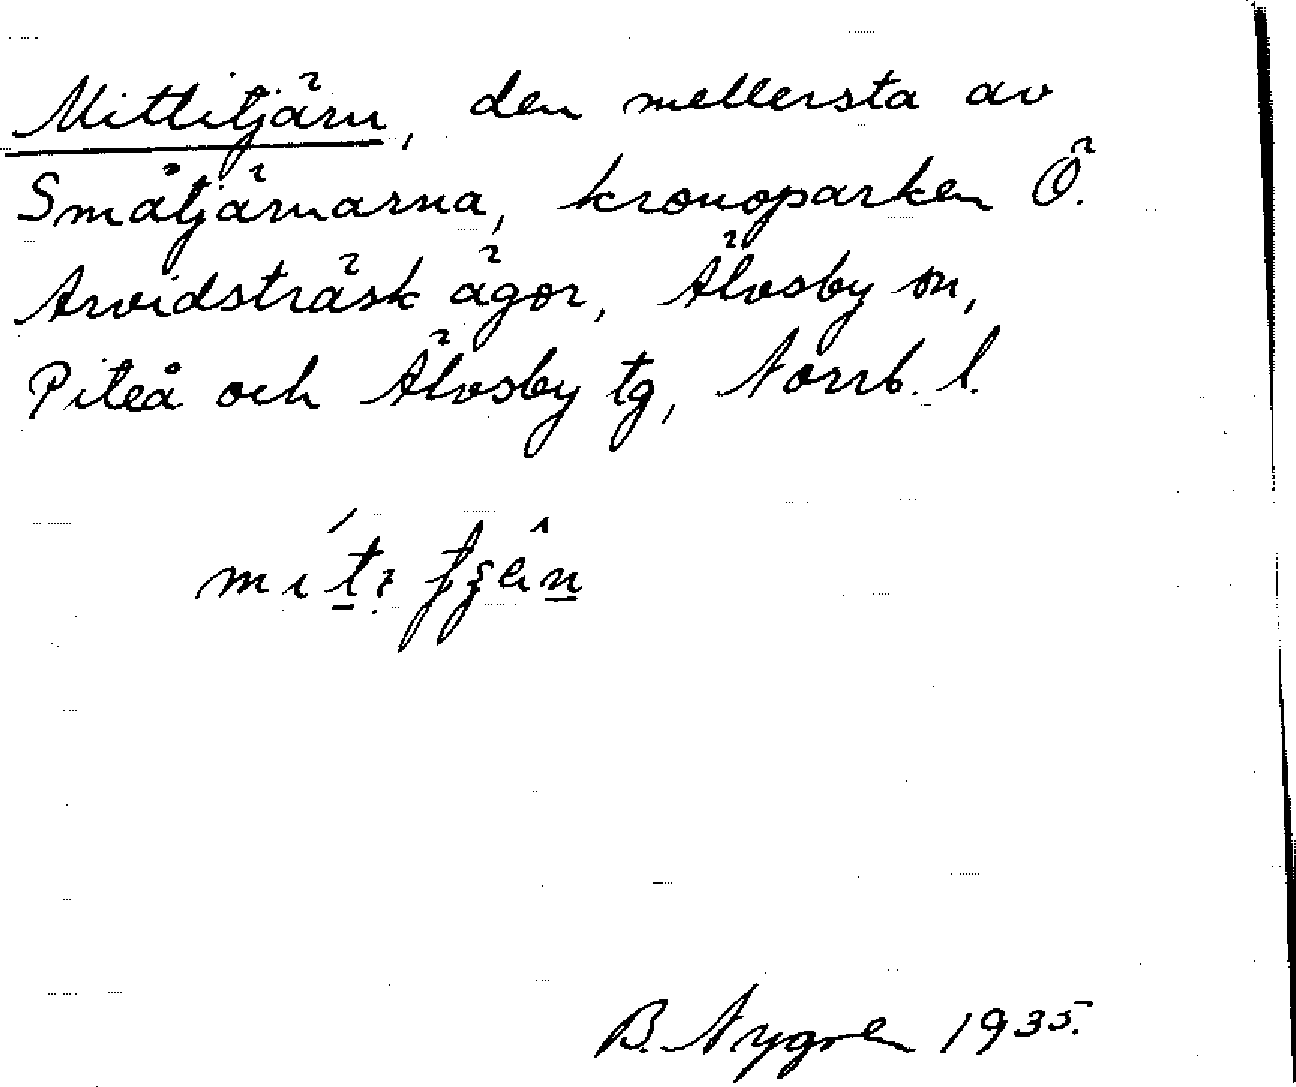 Mittitjärn, den mellersta av
Småtjärnarna, kronoparken Ö.
Arvidsträsk ägor, Älvsby sn,
Piteå och Älvsby tg, Norrb. l.
B. Nygren 1935.